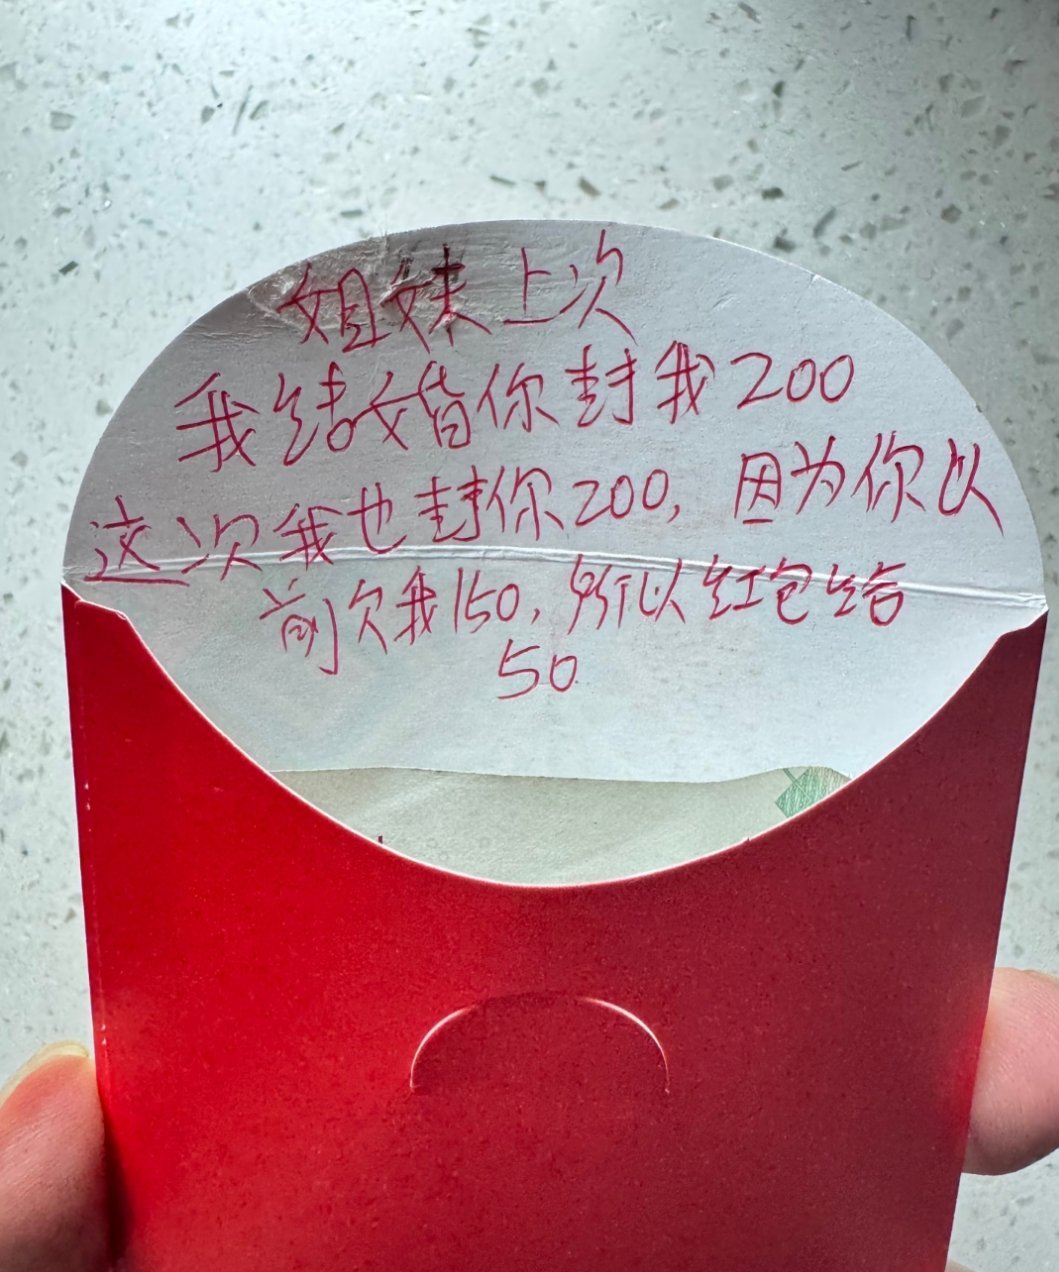 姐妹上次
我结婚你封我200
这次我也封你200,因为你以
前欠我150,所以红包给
50